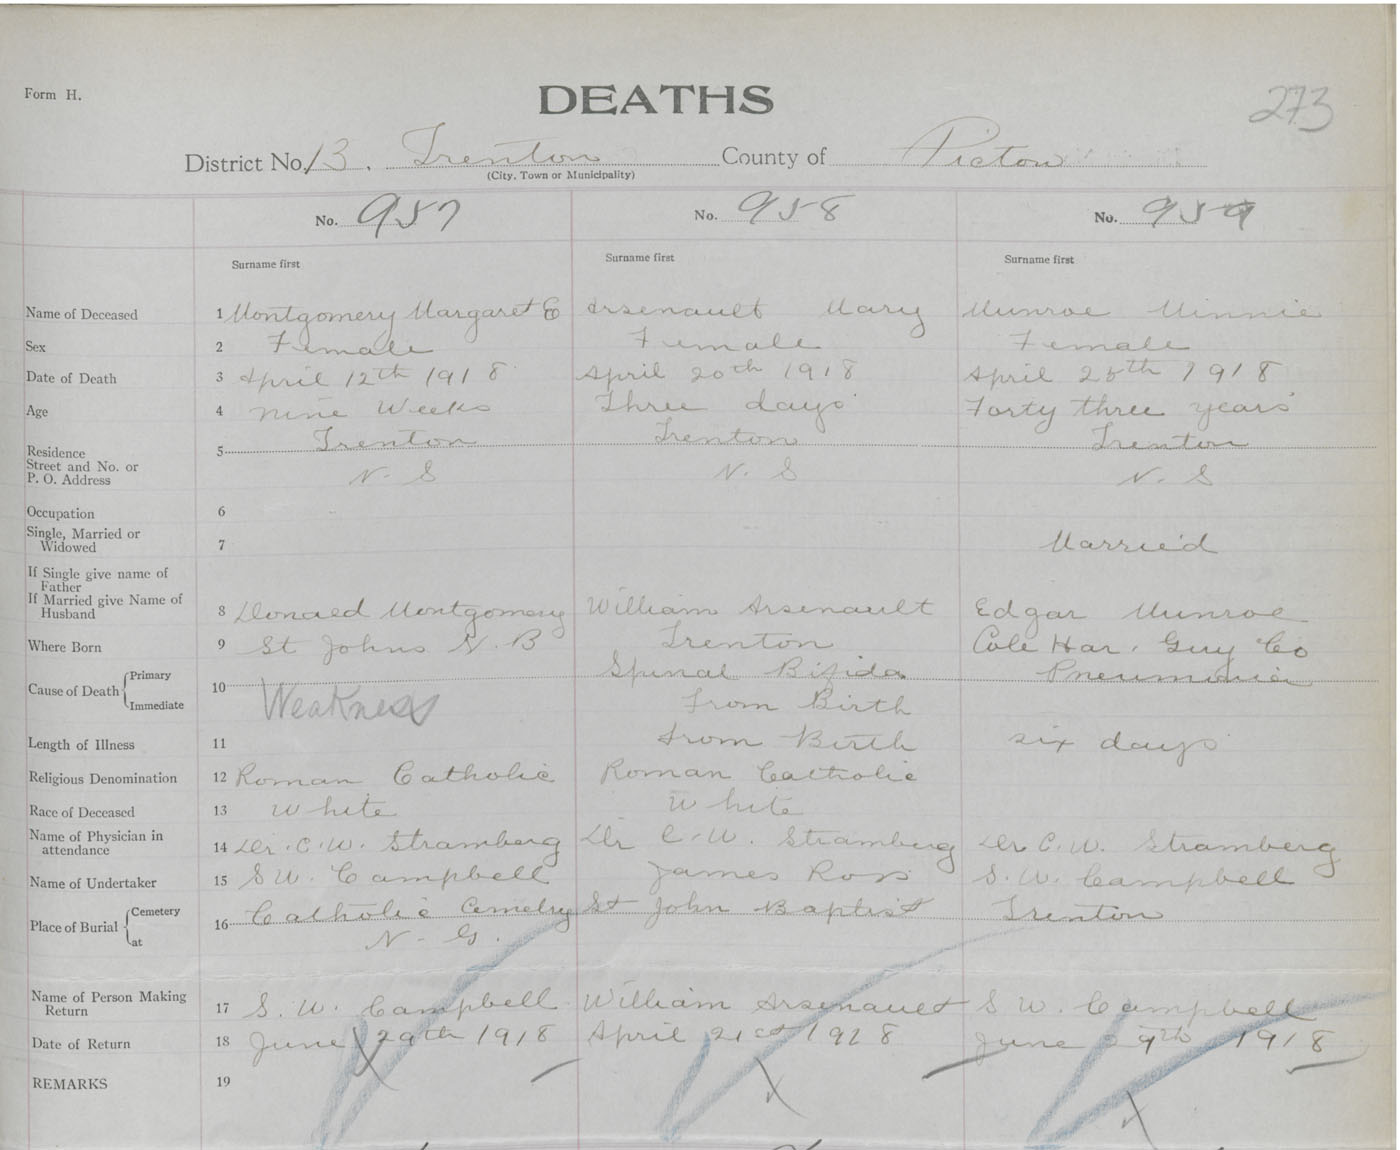 Form H.
DEATHS
273
District No. 13. Trenton County of Pictou
(City, Town or Municipality)
No. 957 No. 958 No. 959
Surname first Surname first Surname first
Name of Deceased 1 Montgomery Margaret E Arsenault Mary Munroe Minnie
Sex 2 Female Female Female
Date of Death 3 April 12th 1918 April 20th 1918 April 25th 1918
Age 4 nine Weeks Three days Forty three years
Residence 5 Trenton Trenton Trenton
Street and No. or
P. O. Address N. S N. S N. S
Occupation 6
Single, Married or
Widowed 7 Married
If Single give name of
Father
If Married give Name of
Husband 8 Donald Montgomery William Arsenault Edgar Munroe
Where Born 9 St Johns N. B Trenton Cole Har. Guy Co
Cause of Death Primary 10 Spinal Bifida Pneumonia
Immediate Weakness From Birth
Length of Illness 11 from Birth six days
Religious Denomination 12 Roman Catholic Roman Catholic
Race of Deceased 13 White White
Name of Physician in
attendance 14 Dr. C. W. Stramberg Dr C. W. Stramberg Dr C. W. Stramberg
Name of Undertaker 15 S W. Campbell James Ross S. W. Campbell
Place of Burial Cemetery 16 Catholic Cemetry St John Baptist Trenton
at N. G.
Name of Person Making
Return 17 S. W. Campbell William Arsenault S W. Campbell
Date of Return 18 June 29th 1918 April 21st 1918 June 29th 1918
REMARKS 19